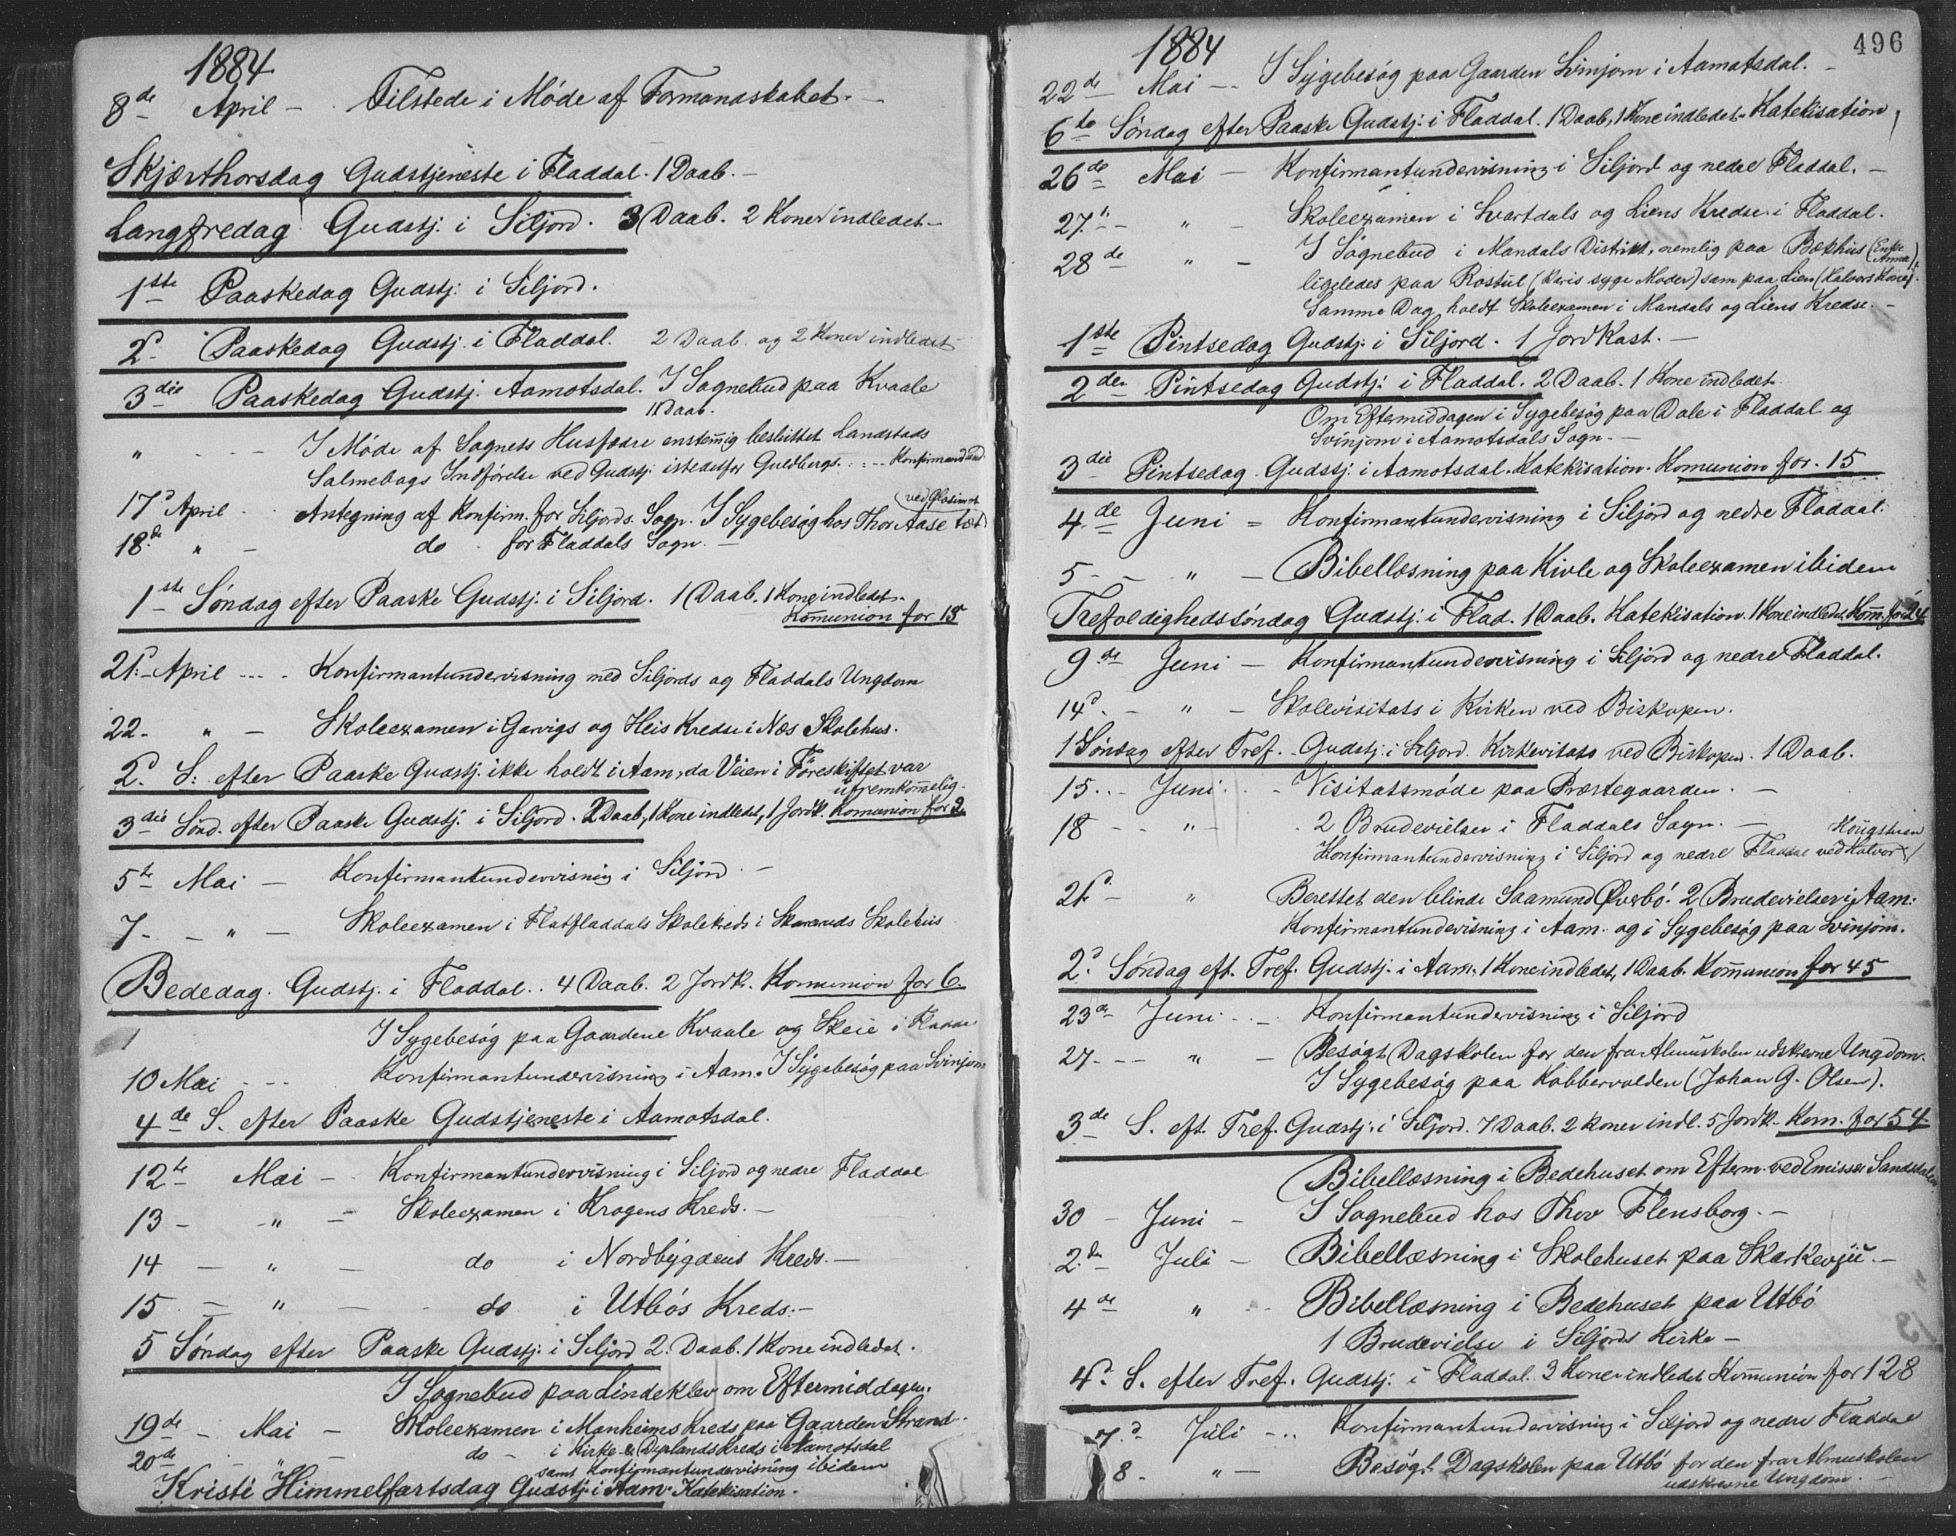 1884
8de April - Tilstede i Møde af Formandskabet. -
Skjærthorsdag Gudstjeneste i Fladdal. 1 Daab. -
Langfredag Gudstj. i Siljord. 3 Daab. 2 Koner indledet -
1ste Paaskedag Gudstj. i Siljord.
2d. Paaskedag Gudstj. i Fladdal. 2 Daab og 2 Koner indledet
3die Paaskedag Gudstj. Aamotsdal. I Sognebud paa Kvaale
1 Daab.
" - - I Møde af Sognets Husfædre enstemig besluttet Landstads
Salmebogs Indførelse ved Gudstj. istedetfor Guldbergs. - Konfirmand
17d April - Antegning af Konfirm. for Siljords Sogn. I Sygebesøg hos Thor Aase
18de " - do for Fladdals Sogn. -
1ste Søndag efter Paaske Gudstj. i Siljord. 1 Daab. 1 Kone indledet.
Kommunion for 15
21d. April - Konfirmantundervisning med Siljords og Fladdals Ungdom
22. " - Skoleexamen i Garvigs og Heis Kredse i Næs Skolehus.
2d. S. efter Paaske Gudstj. ikke holdt i Aam, da Veien i Føreskiftet var
ufremkommelig.
3die Sønd. efter Paaske Gudstj. i Siljord. 2 Daab, 1 Kone indledet, 1 Jordk. Komunion for 2
5te Mai - Konfirmantundervisning i Siljord -
7. - " - Skoleexamen i Flatfladdals Skolekreds i Skaranuds Skolehus
Bededag. Gudstj. i Fladdal. 4 Daab. 2 Jordk. Komunion for 6.
I Sygebesøg paa Gaardene Kvaale og Skeie i Fladda
10 Mai - Konfirmantundervisning i Aam. I Sygebesøg paa Svinjom
4de S. efter Paaske Gudstjeneste i Aamotsdal.
12te Mai - Konfirmantundervisning i Siljord og nedre Fladdal
13 - " - Skoleexamen i Krogens Kreds. -
14 - " - do i Nordbygdens Kreds. -
15 - " - do i Utbøs Kreds. -
5 Søndag efter Paaske Gudstj. i Siljord 2. Daab. 1 Kone indledet.
I Sognebud paa Lindeklev om Eftermiddagen.
19de - Mai - Skoleexamen i Manheims Kreds paa Gaarden Strand.
20de " - do - i Kirke & Dyrlands Kreds i Aamotsdal
samt Konfirmantundervisning ibidem
Kristi Himmelfartsdag Gudstj. i Aam. Katekisation.
1884
496
22de Mai - I Sygebesøg paa Gaarden Svinjom i Aamotsdal. -
6te Søndag efter Paaske Gudstj. i Fladdal. 1 Daab, 1 Kone indledet. Katekisation
26de Mai - Konfirmantundervisning i Siljord og nedre Fladdal. -
27. - " - Skoleexamen i Svartdals og Liens Kredse i Fladdal.
28de " - I Sognebud i Mandals Distrikt, nemlig paa Bækhus (Enke Anne),
ligeledes paa Rostul (Karis syge Moder) sam paa Lien (Halvors Kone).
Samme Dag holdt Skoleexamen i Mandals og Liens Kredse. -
1ste Pintsedag Gudstj. i Siljord. 1 Jordkast. -
2den Pintsedag Gudstj. i Fladdal. 2 Daab. 1 Kone indledet
Om Eftermiddagen i Sygebesøg paa Dale i Fladdal og
Svinjom i Aamotsdals Sogn. -
3die Pintsedag Gudstj. i Aamotsdal. Katekisation. Komunion for 15
4.de Juni = Konfirmantundervisning i Siljord og nedre Fladdal.
5 - - " - Bibellæsning paa Kivle og Skoleexamen ibidem
Trefoldighedssøndag Gudstj. i Flad. 1 Daab. Katekisation. 1 Kone indledet Komm. for 24
9de Juni - Konfirmantundervisning i Siljord og nedre Fladdal.
14d. - " - Skolevisitats i Kirken ved Biskopen.
1 Søndag efter Tref. - Gudstj. i Siljord. Kirkevitats ved Biskopen. 1 Daab.
15. - Juni. - Visitatsmøde paa Præstegaarden. -
18 - - " - 2 Brudevielser i Fladdals Sogn. -
Konfirmantundervisning i Siljord og nedre Fladdal ved Halvor Hougstuen
21d. " Berettet den blinde Saamund Øverbø. 2 Brudevielser i Aam.
Konfirmantundervisning i Aam. og i Sygebesøg paa Svinjom.
2d. Søndag eft. Tref. Gudstj. i Aam. 1 Kone indledet, 1 Daab. Kommunion for 45
23de Juni - Konfirmantundervisning i Siljord
27. - - " - Besøgt Dagskolen for den fra Almuskolen udskrevne Ungdom.
I Sygebesøg paa Kobbervolden (Johan G. Olsen).
3de S. eft. Tref. Gudstj. i Siljord. 7 Daab. 2 koner indl. 5 Jordk. Kom. for 54.
Bibellæsning i Bedehuset om Efterm. ved Emissær Sandsdalen
30 - Juni - I Sognebud hos Thov Flensborg. -
2.den Juli - Bibellæsning i Skolehuset paa Skarkevju. -
4de " - Bibellæsning i Bedehuset paa Utbø
1 Brudevielse i Siljords Kirke -
4d. S. efter Tref. Gudstj. i Fladdal. 3 Koner indledet Kommunion for 128
7.d Juli - Konfirmantundervisning i Siljord og nedre Fladdal
8. " - Besøgt Dagskolen paa Utbø for den fra Almuskolen
udskrevne Ungdom. -